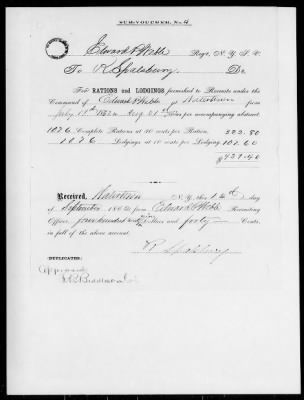 SUB-VOUCHER, No. 4
Edward P. Webb Regt. N. Y. S. V.
To R Spalsbury, Dr.
For RATIONS and LODGINGS furnished to Recruits under the
Command of Edward P Webb, at Watertown from
July 17th 1862 to Aug 31st per accompanying abstract
1076 Complete Rations at 30 cents per Ration, 322.80
1076 Lodgings at 10 cents per Lodging, 107.60
Received, Watertown N. Y. this 1st day
of September 1862 from Edward P Webb Recruiting
Officer, four hundred and dollars and forty Cents,
in full of the above account.
R Spalsbury
(DUPLICATE)
Approved